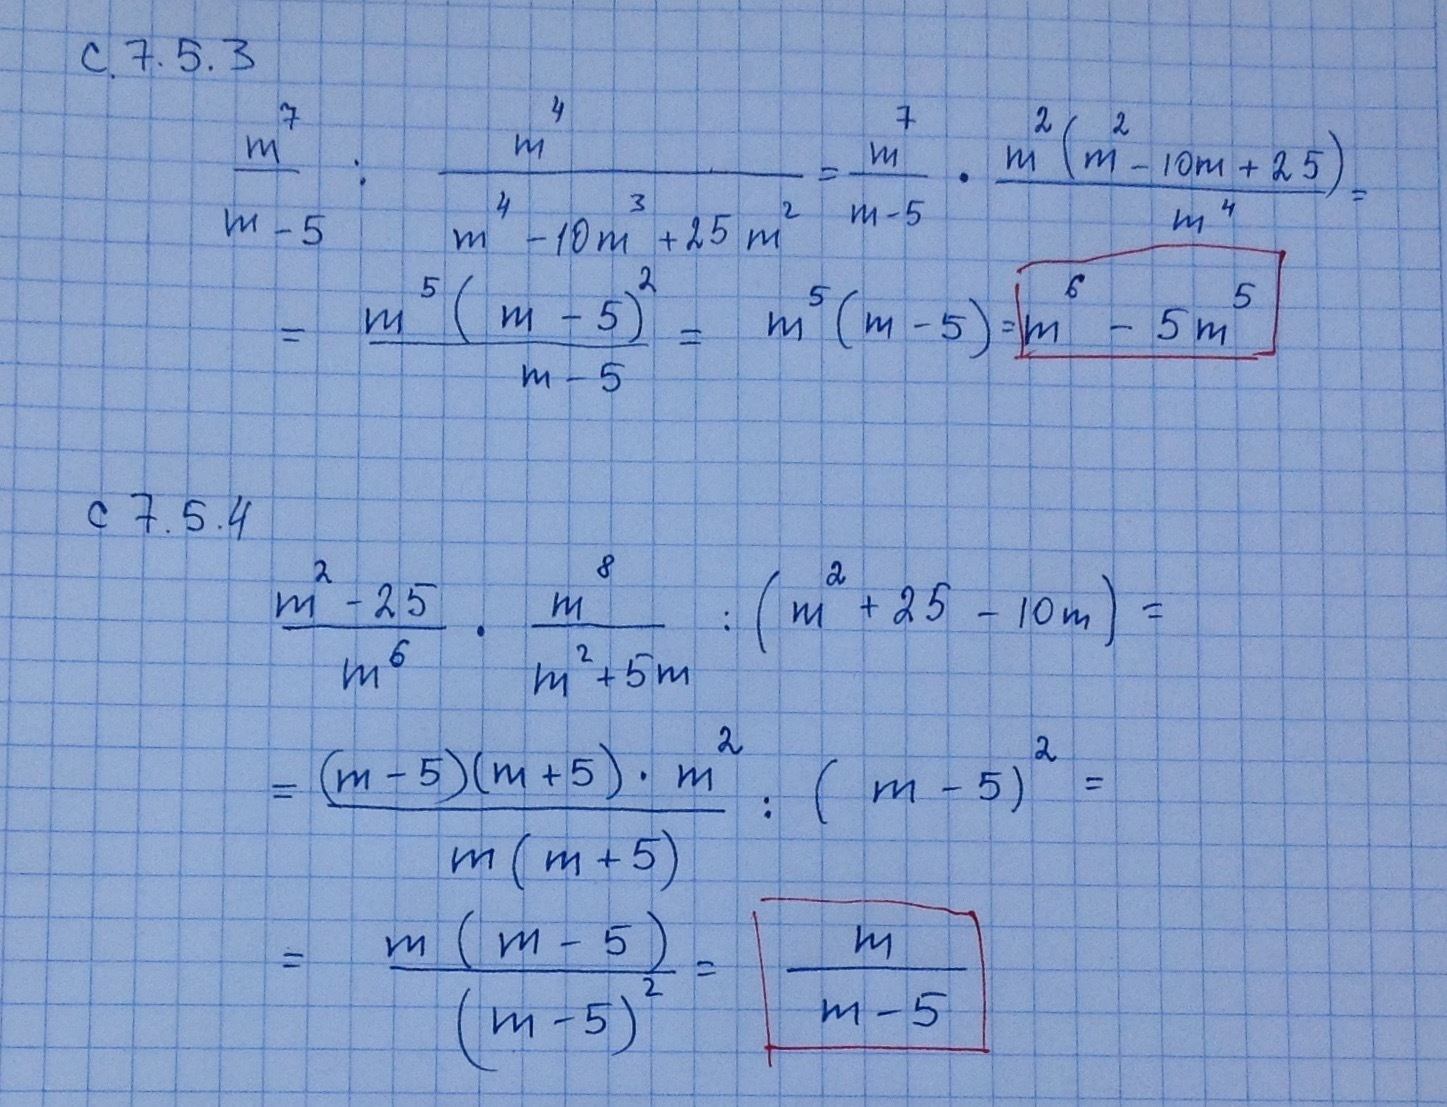 С.7.5.3
m⁷/(m-5) : m⁴/(m⁴-10m³+25m²) = m⁷/(m-5) · m²(m²-10m+25)/m⁴ =
= m⁵(m-5)²/(m-5) = m⁵(m-5) = m⁶-5m⁵
С 7.5.4
(m²-25)/m⁶ · m⁸/(m²+5m) : (m²+25-10m) =
= (m-5)(m+5)·m²/(m(m+5)) : (m-5)² =
= m(m-5)/(m-5)² = m/(m-5)